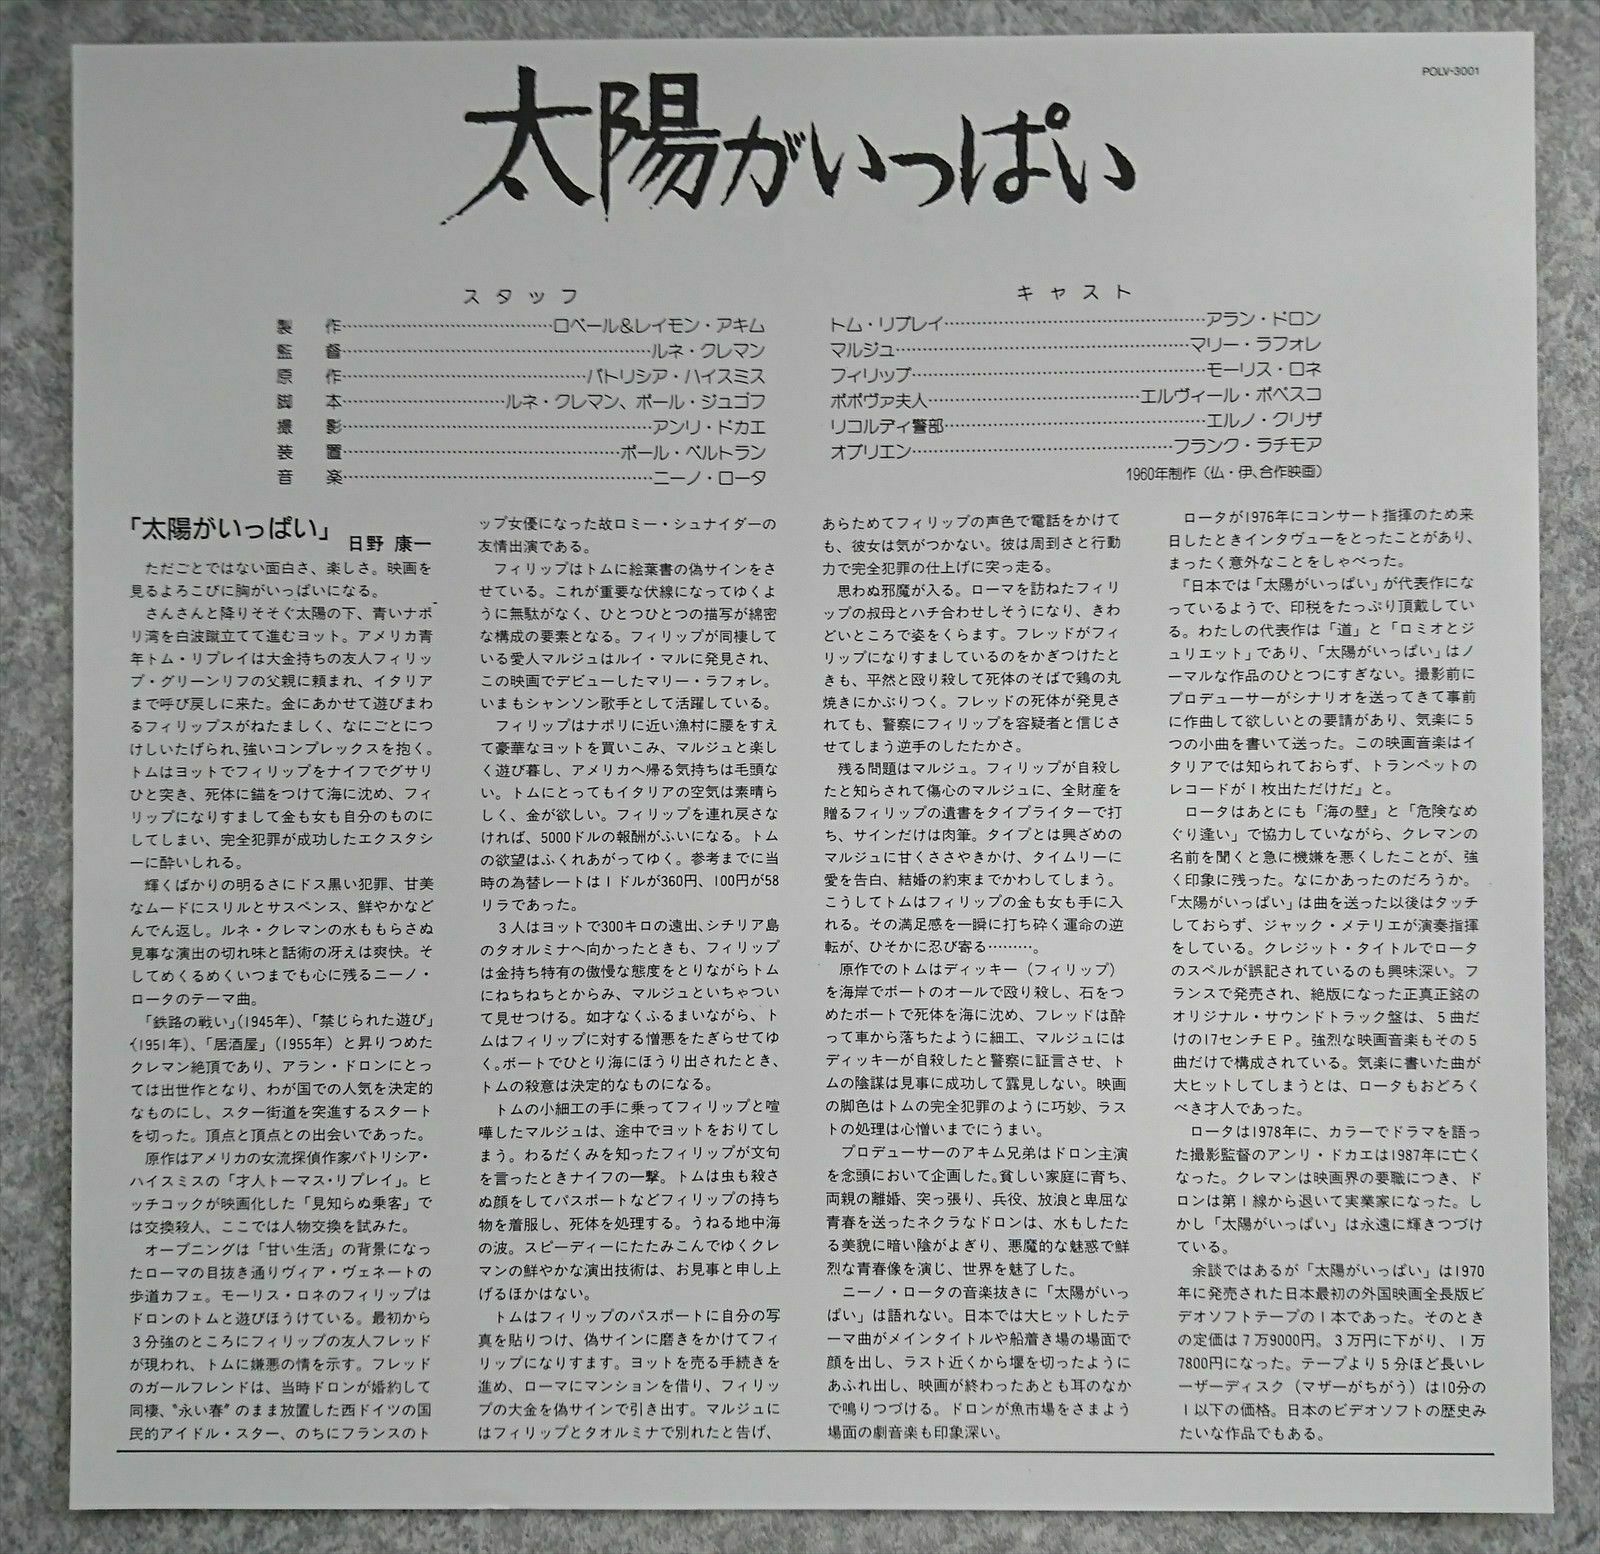 POLV-3001
太陽がいっぱい
スタッフ
製 作……ロベール&レイモン・アキム
監 督……ルネ・クレマン
原 作……パトリシア・ハイスミス
脚 本……ルネ・クレマン、ポール・ジュゴフ
撮 影……アンリ・ドカエ
装 置……ポール・ベルトラン
音 楽……ニーノ・ロータ
キャスト
トム・リプレイ……アラン・ドロン
マルジュ……マリー・ラフォレ
フィリップ……モーリス・ロネ
ポポヴァ夫人……エルヴィール・ポペスコ
リコルディ警部……エルノ・クリザ
オブリエン……フランク・ラチモア
1960年制作(仏・伊、合作映画)
「太陽がいっぱい」
日野 康一
ただごとではない面白さ、楽しさ。映画を
見るよろこびに胸がいっぱいになる。
さんさんと降りそそぐ太陽の下、青いナポ
リ湾を白波蹴立てて進むヨット。アメリカ青
年トム・リプレイは大金持ちの友人フィリッ
プ・グリーンリフの父親に頼まれ、イタリア
まで呼び戻しに来た。金にあかせて遊びまわ
るフィリップスがねたましく、なにごとにつ
けしいたげられ、強いコンプレックスを抱く。
トムはヨットでフィリップをナイフでグサリ
ひと突き、死体に錨をつけて海に沈め、フィ
リップになりすまして金も女も自分のものに
してしまい、完全犯罪が成功したエクスタシ
ーに酔いしれる。
輝くばかりの明るさにドス黒い犯罪、甘美
なムードにスリルとサスペンス、鮮やかなど
んでん返し。ルネ・クレマンの水ももらさぬ
見事な演出の切れ味と話術の冴えは爽快。そ
してめくるめくいつまでも心に残るニーノ・
ロータのテーマ曲。
「鉄路の戦い」(1945年)、「禁じられた遊び」
(1951年)、「居酒屋」(1955年)と昇りつめた
クレマン絶頂であり、アラン・ドロンにとっ
ては出世作となり、わが国での人気を決定的
なものにし、スター街道を突進するスタート
を切った。頂点と頂点との出会いであった。
原作はアメリカの女流探偵作家パトリシア・
ハイスミスの「才人トーマス・リプレイ」。ヒ
ッチコックが映画化した「見知らぬ乗客」で
は交換殺人、ここでは人物交換を試みた。
オープニングは「甘い生活」の背景になっ
たローマの目抜き通りヴィア・ヴェネートの
歩道カフェ。モーリス・ロネのフィリップは
ドロンのトムと遊びほうけている。最初から
3分強のところにフィリップの友人フレッド
が現われ、トムに嫌悪の情を示す。フレッド
のガールフレンドは、当時ドロンが婚約して
同棲、〝永い春〟のまま放置した西ドイツの国
民的アイドル・スター、のちにフランスのト
ップ女優になった故ロミー・シュナイダーの
友情出演である。
フィリップはトムに絵葉書の偽サインをさ
せている。これが重要な伏線になってゆくよ
うに無駄がなく、ひとつひとつの描写が綿密
な構成の要素となる。フィリップが同棲して
いる愛人マルジュはルイ・マルに発見され、
この映画でデビューしたマリー・ラフォレ。
いまもシャンソン歌手として活躍している。
フィリップはナポリに近い漁村に腰をすえ
て豪華なヨットを買いこみ、マルジュと楽し
く遊び暮し、アメリカへ帰る気持ちは毛頭な
い。トムにとってもイタリアの空気は素晴ら
しく、金が欲しい。フィリップを連れ戻さな
ければ、5000ドルの報酬がふいになる。トム
の欲望はふくれあがってゆく。参考までに当
時の為替レートは1ドルが360円、100円が58
リラであった。
3人はヨットで300キロの遠出、シチリア島
のタオルミナへ向かったときも、フィリップ
は金持ち特有の傲慢な態度をとりながらトム
にねちねちとからみ、マルジュといちゃつい
て見せつける。如才なくふるまいながら、ト
ムはフィリップに対する憎悪をたぎらせてゆ
く。ボートでひとり海にほうり出されたとき、
トムの殺意は決定的なものになる。
トムの小細工の手に乗ってフィリップと喧
嘩したマルジュは、途中でヨットをおりてし
まう。わるだくみを知ったフィリップが文句
を言ったときナイフの一撃。トムは虫も殺さ
ぬ顔をしてパスポートなどフィリップの持ち
物を着服し、死体を処理する。うねる地中海
の波。スピーディーにたたみこんでゆくクレ
マンの鮮やかな演出技術は、お見事と申し上
げるほかはない。
トムはフィリップのパスポートに自分の写
真を貼りつけ、偽サインに磨きをかけてフィ
リップになりすます。ヨットを売る手続きを
進め、ローマにマンションを借り、フィリッ
プの大金を偽サインで引き出す。マルジュに
はフィリップとタオルミナで別れたと告げ、
あらためてフィリップの声色で電話をかけて
も、彼女は気がつかない。彼は周到さと行動
力で完全犯罪の仕上げに突っ走る。
思わぬ邪魔が入る。ローマを訪ねたフィリ
ップの叔母とハチ合わせしそうになり、きわ
どいところで姿をくらます。フレッドがフィ
リップになりすましているのをかぎつけたと
きも、平然と殴り殺して死体のそばで鶏の丸
焼きにかぶりつく。フレッドの死体が発見さ
れても、警察にフィリップを容疑者と信じさ
せてしまう逆手のしたたかさ。
残る問題はマルジュ。フィリップが自殺し
たと知らされて傷心のマルジュに、全財産を
贈るフィリップの遺書をタイプライターで打
ち、サインだけは肉筆。タイプとは興ざめの
マルジュに甘くささやきかけ、タイムリーに
愛を告白、結婚の約束までかわしてしまう。
こうしてトムはフィリップの金も女も手に入
れる。その満足感を一瞬に打ち砕く運命の逆
転が、ひそかに忍び寄る………。
原作でのトムはディッキー(フィリップ)
を海岸でボートのオールで殴り殺し、石をつ
めたボートで死体を海に沈め、フレッドは酔
って車から落ちたように細工、マルジュには
ディッキーが自殺したと警察に証言させ、ト
ムの陰謀は見事に成功して露見しない。映画
の脚色はトムの完全犯罪のように巧妙、ラス
トの処理は心憎いまでにうまい。
プロデューサーのアキム兄弟はドロン主演
を念頭において企画した。貧しい家庭に育ち、
両親の離婚、突っ張り、兵役、放浪と卑屈な
青春を送ったネクラなドロンは、水もしたた
る美貌に暗い陰がよぎり、悪魔的な魅惑で鮮
烈な青春像を演じ、世界を魅了した。
ニーノ・ロータの音楽抜きに「太陽がいっ
ぱい」は語れない。日本では大ヒットしたテ
ーマ曲がメインタイトルや船着き場の場面で
顔を出し、ラスト近くから堰を切ったように
あふれ出し、映画が終わったあとも耳のなか
で鳴りつづける。ドロンが魚市場をさまよう
場面の劇音楽も印象深い。
ロータが1976年にコンサート指揮のため来
日したときインタヴューをとったことがあり、
まったく意外なことをしゃべった。
『日本では「太陽がいっぱい」が代表作にな
っているようで、印税をたっぷり頂戴してい
る。わたしの代表作は「道」と「ロミオとジ
ュリエット」であり、「太陽がいっぱい」はノ
ーマルな作品のひとつにすぎない。撮影前に
プロデューサーがシナリオを送ってきて事前
に作曲して欲しいとの要請があり、気楽に5
つの小曲を書いて送った。この映画音楽はイ
タリアでは知られておらず、トランペットの
レコードが1枚出ただけだ』と。
ロータはあとにも「海の壁」と「危険なめ
ぐり逢い」で協力していながら、クレマンの
名前を聞くと急に機嫌を悪くしたことが、強
く印象に残った。なにかあったのだろうか。
「太陽がいっぱい」は曲を送った以後はタッチ
しておらず、ジャック・メテリエが演奏指揮
をしている。クレジット・タイトルでロータ
のスペルが誤記されているのも興味深い。フ
ランスで発売され、絶版になった正真正銘の
オリジナル・サウンドトラック盤は、5曲だ
けの17センチEP。強烈な映画音楽もその5
曲だけで構成されている。気楽に書いた曲が
大ヒットしてしまうとは、ロータもおどろく
べき才人であった。
ロータは1978年に、カラーでドラマを語っ
た撮影監督のアンリ・ドカエは1987年に亡く
なった。クレマンは映画界の要職につき、ド
ロンは第1線から退いて実業家になった。し
かし「太陽がいっぱい」は永遠に輝きつづけ
ている。
余談ではあるが「太陽がいっぱい」は1970
年に発売された日本最初の外国映画全長版ビ
デオソフトテープの1本であった。そのとき
の定価は7万9000円。3万円に下がり、1万
7800円になった。テープより5分ほど長いレ
ーザーディスク(マザーがちがう)は10分の
1以下の価格。日本のビデオソフトの歴史み
たいな作品でもある。